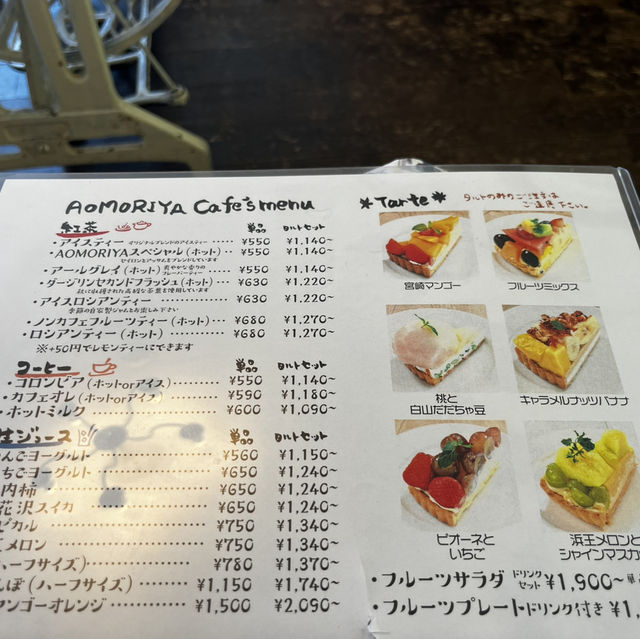 AOMORIYA Cafe's menu
紅茶 単品 タルトセット
・アイスティー オリジナルブレンドのアイスティー …… ¥550 ¥1,140~
・AOMORIYAスペシャル(ホット)‥ ¥550 ¥1,140~
セイロンとアッサムをブレンドしています
・アールグレイ(ホット) 爽やかな香りのフレーバーティー …… ¥550 ¥1,140~
・ダージリンセカンドフラッシュ(ホット)‥ ¥630 ¥1,220~
秋に収穫された高級な茶葉を使用しています
・アイスロシアンティー ………… ¥630 ¥1,220~
季節の自家製ジャムとお楽しみ下さい
・ノンカフェフルーツティー(ホット)… ¥680 ¥1,270~
・ロシアンティー(ホット) ………… ¥680 ¥1,270~
※+50円でレモンティーにできます
コーヒー 単品 タルトセット
・コロンビア(ホットorアイス)……… ¥550 ¥1,140~
・カフェオレ(ホットorアイス)……… ¥590 ¥1,180~
・ホットミルク ……………… ¥600 ¥1,090~
生ジュース 単品 タルトセット
んごヨーグルト ………… ¥560 ¥1,150~
ちごヨーグルト ………… ¥650 ¥1,240~
内柿 ………… ¥650 ¥1,240~
花沢スイカ ………… ¥650 ¥1,240~
ピカル ………… ¥750 ¥1,340~
メロン ………… ¥750 ¥1,340~
ハーフサイズ) ………… ¥780 ¥1,370~
んぼ(ハーフサイズ) ……… ¥1,150 ¥1,740~
マンゴーオレンジ ……… ¥1,500 ¥2,090~
*Tarte* タルトのみのご注文は
ご遠慮下さい。
宮崎マンゴー
フルーツミックス
桃と
白山だだちゃ豆
キャラメルナッツバナナ
ピオーネと
いちご
浜玉メロンと
シャインマスカ
・フルーツサラダ ドリンクセット ¥1,900~
・フルーツプレート ドリンク付き ¥1,